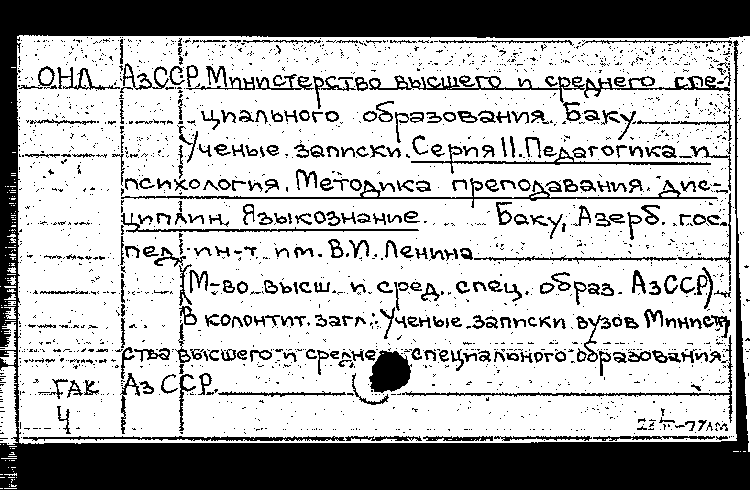 ОНЛ АзССР. Министерство высшего и среднего спе-
циального образования. Баку.
Ученые записки. Серия II. Педагогика и
психология. Методика преподавания. дис-
циплин. Языкознание. Баку, Азерб. гос.
пед. ин-т им. В.И. Ленина
(М-во высш. и сред. спец. образ. АзССР)
В колонтит. загл.: Ученые записки вузов Министер
ства высшего и среднего специального образования
ГАК АзССР.
Ч